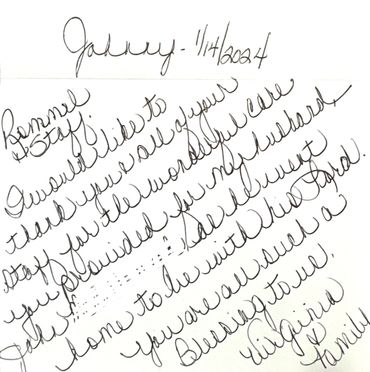 Johnny - 1/14/2024
Rommel
& Staff.
I would like to
thank you & all of your
staff for the wonderful care
you provided for my husband,
John as he went
home to be with his Lord.
You are all such a
Blessing to us.
Virginia
& Family